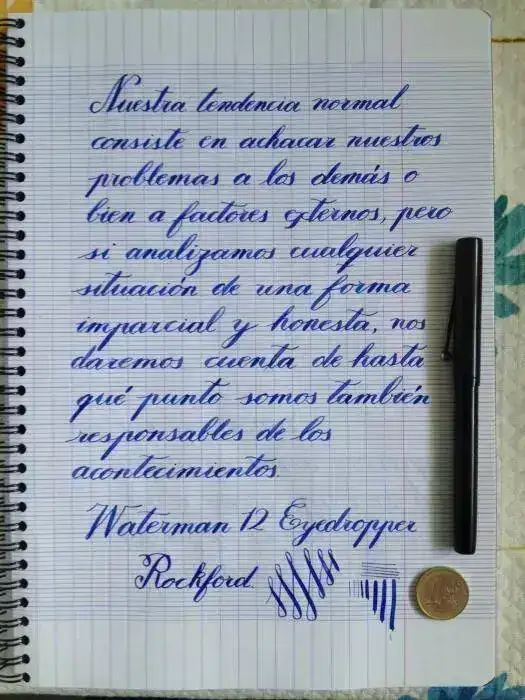 Nuestra tendencia normal
consiste en achacar nuestros
problemas a los demás o
bien a factores externos, pero
si analizamos cualquier
situación de una forma
imparcial y honesta, nos
daremos cuenta de hasta
qué punto somos también
responsables de los
acontecimientos.
Waterman 12 Eyedropper
Rockford.